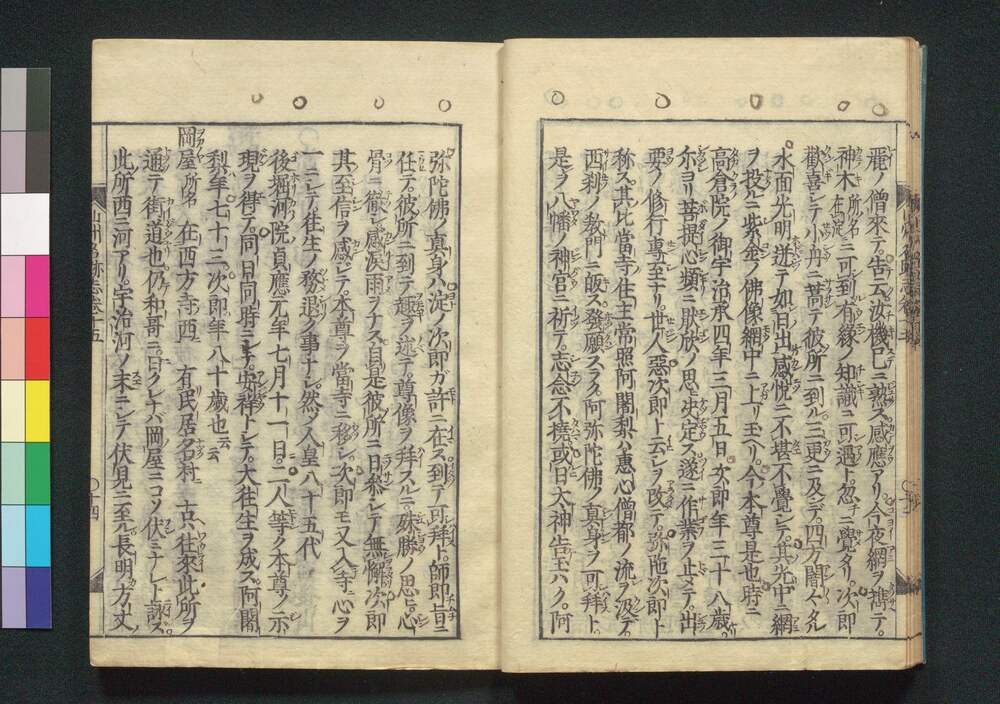 麗ノ僧來テ告云汝機已ニ熟ス感應アリ今夜網ヲ携テ
神木所名在淀ニ可到有縁ノ知識ニ可遇ト忽チニ覺タリ次郎
歡喜シテ小舟ニ葦テ彼所ニ到ル三更ニ及デ四方闇々タル
水面光明逬テ如日出感悦ニ不堪不覺シテ其光中ニ網
ヲ投ニ紫金ノ佛像網中ニ上リ玉ヘリ今本尊是也時ニ
高倉院ノ御宇治承四年三月五日次郎年三十八歳
尓ヨリ菩提心頻ニ厭欣ノ思ヒ決定ス遂ニ作業ヲ止メテ出
要ノ修行專至ナリ世人惡次郎ト云シヲ改テ弥陀次郎ト
稱ス其比當寺ノ住主常照阿闍梨ハ惠心僧都ノ流ヲ汲テ
西刹ノ教門ニ皈ス發願スラク阿弥陀佛ノ真身ヲ可拜ト
是ヲ八幡ノ神官ニ祈テ志念不撓或日大神告玉ハク阿
弥陀佛ノ真身ハ淀ノ次郎ガ許ニ在ス到テ可拜ト師即旨ニ
任テ彼所ニ到テ趣ヲ述テ尊像ヲ拜スルニ殊勝ノ思ヒ心
骨ニ徹シ感涙雨ヲナス自是彼所ニ日參シテ無懈次郎
其至信ヲ感シテ本尊ヲ當寺ニ移シ次郎モ又入寺ニ心ヲ
一ニシテ往生ノ務退ク事ナシ然フ人皇八十五代
後堀河院貞應元年七月十一日二人等ク本尊ノ示
現ヲ得テ同日同時ニシテ安祥トシテ大往生ヲ成ス阿闍
梨年七十三次郎年八十歳也云云
岡屋所名 在西方寺西 有民居名村 古ハ往來此所ヲ
通テ街道也仍和哥ニ日クレナバ岡屋ニコソ伏ミナレト詠ス
此所西ニ河アリ宇治河ノ末ニシテ伏見ニ至ル長明方丈
山州名跡志巻十五
十四